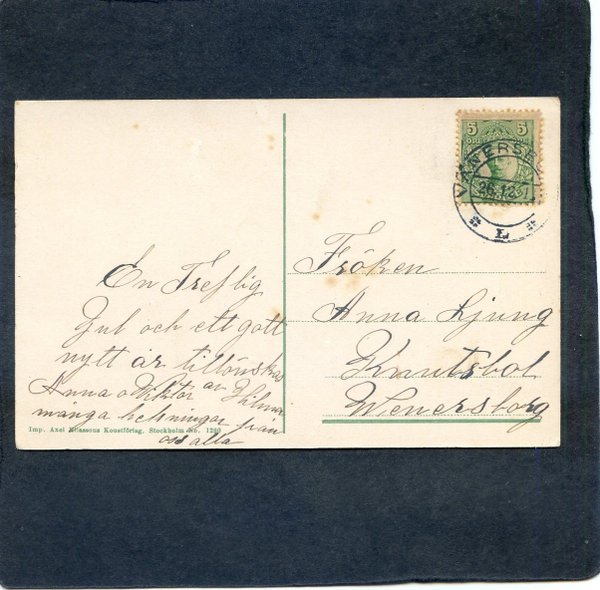 En Treflig
Jul och ett gott
nytt år tillönskas
Anna o Viktor av Hilma
många helsningar från
oss alla
Imp. Axel Eliassons Konstförlag, Stockholm No.
5 5
VÄNERSBORG
26.12
L
Fröken
Anna Ljung
Knutsbol
Wenersborg